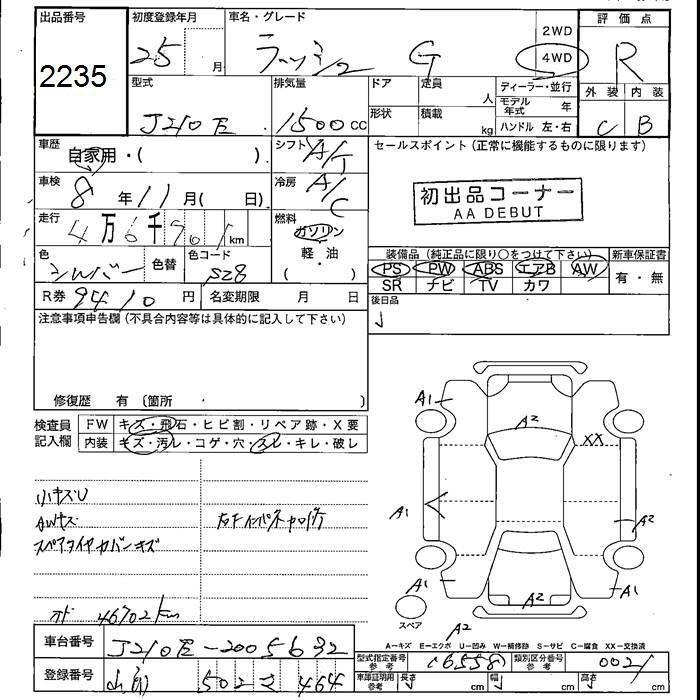 出品番号
2235
初度登録年月
25 月
車名・グレード
ラッシュ G
2WD
4WD
評価点
R
型式
J210E
排気量
1500 cc
ドア
定員
人
形状
積載
kg
ディーラー・並行
モデル年式 年
ハンドル 左・右
外装 内装
C B
車歴
自家用・( )
シフト
A/T
セールスポイント(正常に機能するものに限ります)
初出品コーナー
AA DEBUT
車検
8年 11月( 日)
冷房
A/C
走行
4万6千701 km
燃料
ガソリン
軽・油
( )
色
シルバー
色替
色コード
S28
装備品(純正品に限り○をつけて下さい)
新車保証書
PS PW ABS エアB AW
SR ナビ TV カワ
有・無
R券 9410円
名変期限 月 日
後日品
注意事項申告欄(不具合内容等は具体的に記入して下さい)
修復歴 有 〔箇所 〕
検査員記入欄
FW キズ・飛石・ヒビ割・リペア跡・X要
内装 キズ・汚レ・コゲ・穴・スレ・キレ・破レ
小キズU
AWキズ
スペアタイヤカバーキズ
46702km
A1
A2
XX
A1
A2
A1
A2
A1
スペア
A2
A-キズ E-エクボ U-凹み W-補修跡 S-サビ C-腐食 XX-交換済
車台番号
J210E-2005632
型式指定番号 参考
16558
類別区分番号 参考
0021
登録番号
502 464
車庫証明用 参考
長さ cm
幅 cm
高さ cm